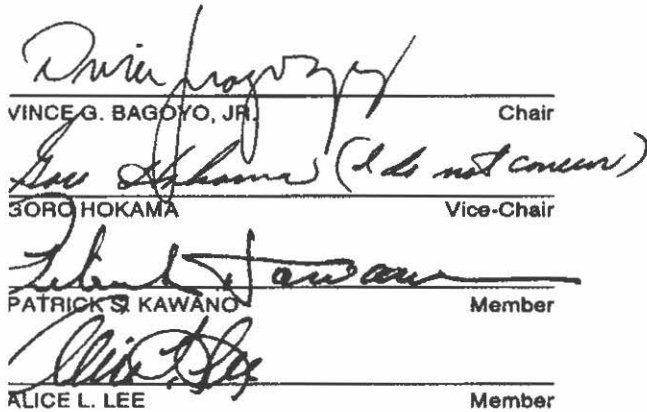 VINCE G. BAGOYO, JR. Chair
Goro Hokama (I do not concur)
GORO HOKAMA Vice-Chair
PATRICK S. KAWANO Member
Alice L. Lee
ALICE L. LEE Member